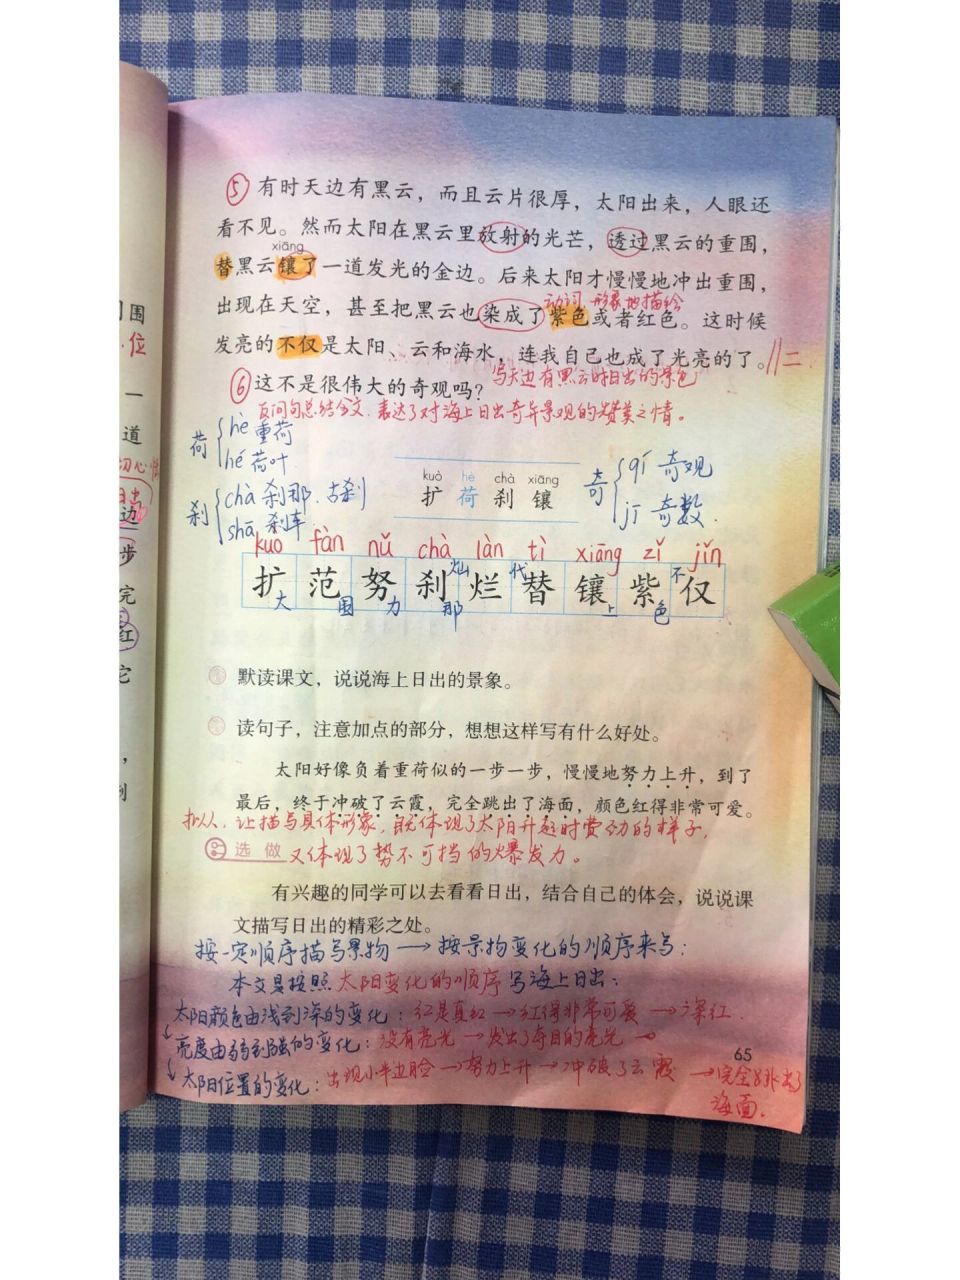 ⑤ 有时天边有黑云，而且云片很厚，太阳出来，人眼还
看不见。然而太阳在黑云里放射的光芒，透过黑云的重围，
xiāng
替黑云镶了一道发光的金边。后来太阳才慢慢地冲出重围，
出现在天空，甚至把黑云也染成了紫色或者红色。这时候
动词 形象地描绘
发亮的不仅是太阳、云和海水，连我自己也成了光亮的了。//二
写天边有黑云时日出的景色
⑥ 这不是很伟大的奇观吗？
反问句总结全文.表达了对海上日出奇异景观的赞美之情。
荷 hè 重荷
hé 荷叶
刹 chà 刹那.古刹
shā 刹车
kuò hè chà xiāng
扩 荷 刹 镶
奇 qí 奇观
jī 奇数.
kuo fàn nǔ chà làn tì xiāng zǐ jǐn
扩 范 努 刹 烂 替 镶 紫 仅
大 围 力 那 灿 代 上 色 不
默读课文，说说海上日出的景象。
读句子，注意加点的部分，想想这样写有什么好处。
太阳好像负着重荷似的一步一步，慢慢地努力上升，到了
最后，终于冲破了云霞，完全跳出了海面，颜色红得非常可爱。
拟人.让描写具体形象，既体现了太阳升起时费劲的样子，
选做
又体现了势不可挡的爆发力。
有兴趣的同学可以去看看日出，结合自己的体会，说说课
文描写日出的精彩之处。
按一定顺序描写景物→按景物变化的顺序来写：
本文是按照太阳变化的顺序写海上日出：
太阳颜色由浅到深的变化：红是真红→红得非常可爱→深红.
亮度由弱到强的变化：没有亮光→发出了夺目的亮光
65
太阳位置的变化：出现小半边脸→努力上升→冲破了云霞→完全跳出了
海面.
围
位
一
道
边
步
完
红
它